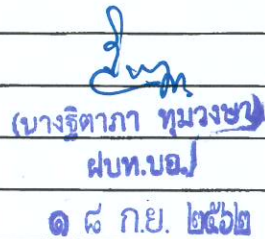 (นางฐิตาภา ทุมวงษา)
ฝบท.บอ.
๑ ๘ ก.ย. ๒๕๖๒